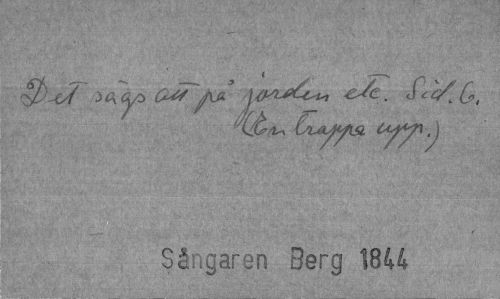 Det sägs att på jorden etc. Sid. 6.
(En trappa upp.)
Sångaren Berg 1844